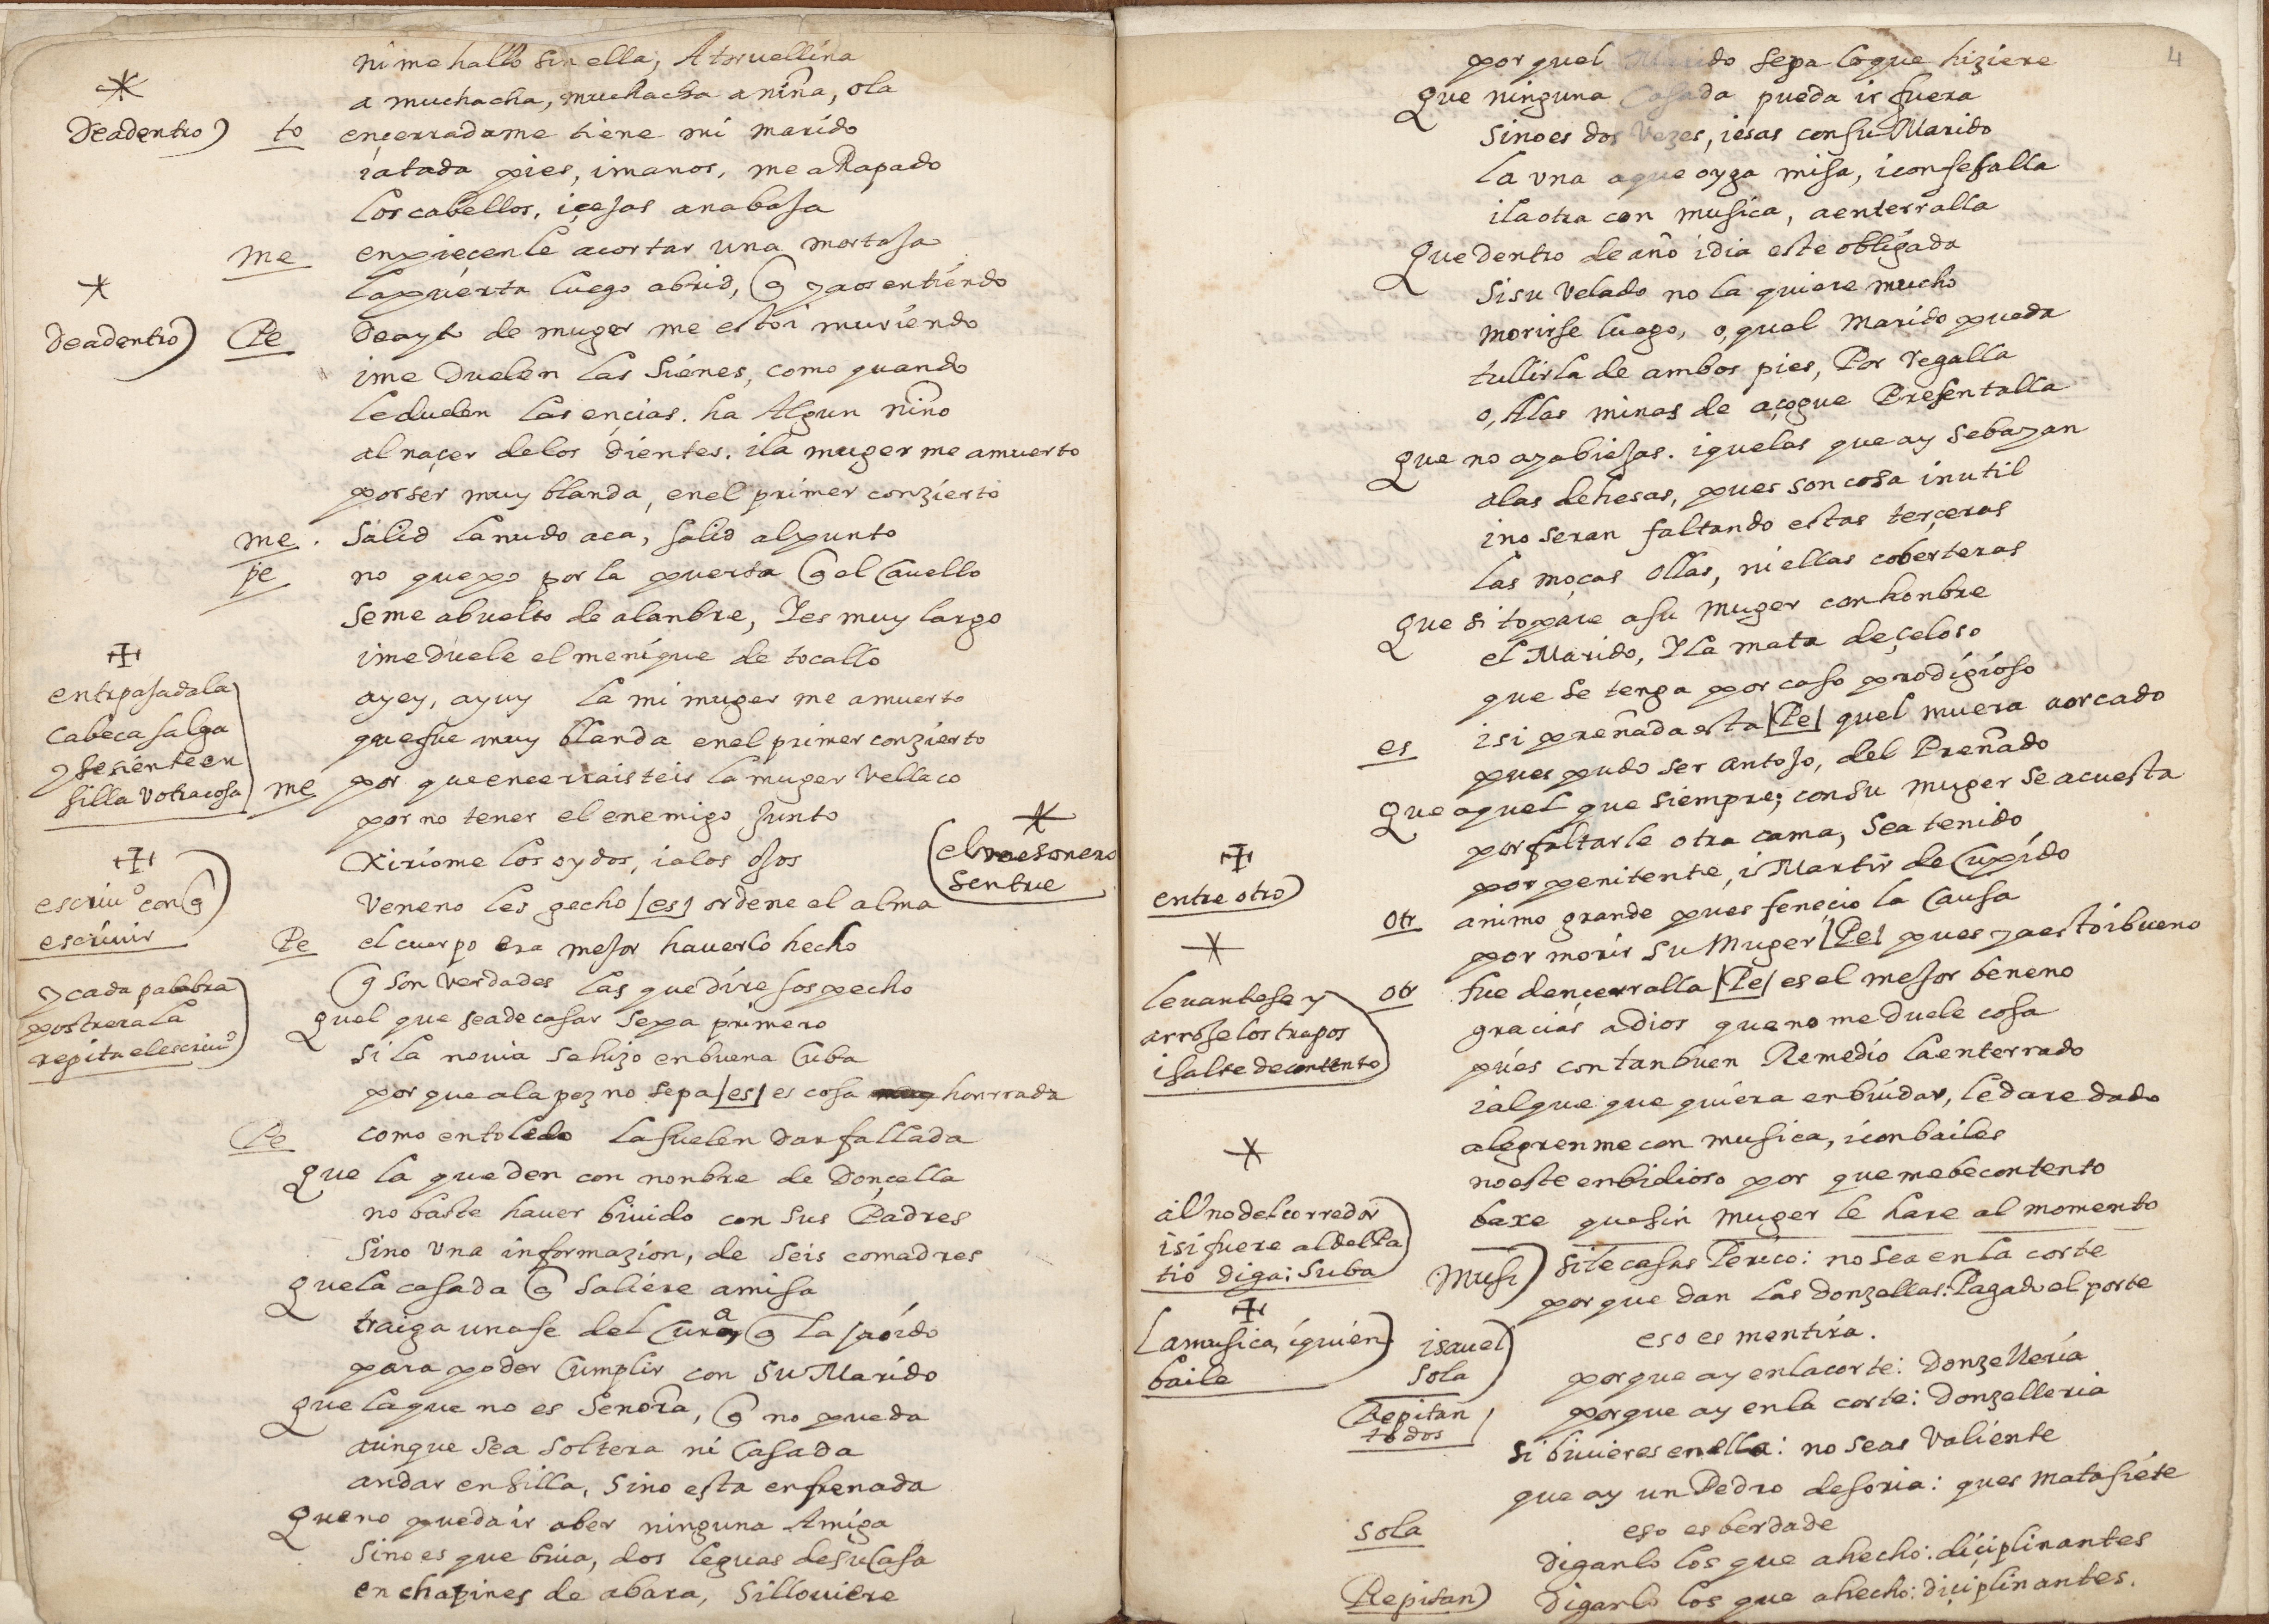 ni me hallo sin ella, Atorvellina
a muchacha, muchacha a niña, ola
Deadentro) to ençerradame tiene mi marido
iatada pies, imanos, me a Rapado
los cabellos, içejas anabaja
me enpieçenle acortar una mortaja
la puerta luego abrid, q yaos entiendo
Deadentro) Pe Deayt de muger me estoi muriendo
ime Duelen las Sienes, como quando
le duelen las ençias. ha Algun niño
al naçer delos dientes. ila muger me amuerto
por ser muy blanda, enel primer conzierto
me . Salid lanudo aca, salid alpunto
pe no quepo por la puerta q el Cavello
seme abuelto de alanbre, Yes muy largo
imeduele el menique de tocallo
ayey, ayuy la mi muger me amuerto
quefue muy blanda enel primer conzierto
entrpasadala
cabeca salga
ysesienteen
silla v otracosa
me por queencerraisteis la muger vellaco
por no tener el enemigo Junto
Xiriome los oydos, ialos ojos
(el mesonero
sentre
Veneno les gecho /es/ ordene el alma
escriuo con q
escriuir
Pe el cuerpo era mejor hauerlo hecho
q son verdades las quedire sospecho
ycada palabra
postrera la
repita elescriuo
Quel que seadecasar sepa primero
si la novia sehizo enbuena Cuba
por que ala pez no sepa /es/ es cosa honrrada
Pe como entoledo lasuelen dar fallada
Que la queden con nonbre de Donçella
no baste hauer biuido con sus Padres
sino una informazion, de seis comadres
Quela casada q saliere amisa
traiga unafe del Cura q la aoido
para poder Cumplir con su Marido
Que laque no es Señora, q no pueda
aunque sea soltera ni Casada
andar ensilla, sino esta enfrenada
Queno pueda ir aber ninguna Amiga
sinoes que biua, dos leguas desuCasa
en chapines de abara, sillouiere
4
por quel Marido sepa loque hiziere
Que ninguna Casada pueda ir fuera
sinoes dos Vezes, iesas consu Marido
la una aque oyga misa, iconfesalla
ilaotra con musica, aenterralla
Quedentro deaño idia este obligada
sisu velado no la quiere mucho
morirse luego, o, qual Marido pueda
tullirla de ambos pies, Por regalla
o, Alas minas de açogue Presentalla
Que no ayabiejas. iquelas que ay sebayan
alas dehesas, pues son cosa inutil
ino seran faltando estas terçeras
las moças ollas, niellas coberteras
Que si topare asu muger conhonbre
el Marido, Yla mata deçeloso
que se tenga por caso prodigioso
es isi preñada esta /Pe/ quel muera aorcado
pues pudo ser antojo, del Preñado
Que aquel que siempre; consu muger se acuesta
porfaltarle otra cama, sea tenido
por penitente, i Martir de Cupido
entre otro)
otr animo grande pues feneçio la Causa
por morir su Muger /Pe/ pues yaestoibueno
otr fue dençerralla /Pe/ es el mejor beneno
levantese y
arrojelostrapos
isalte decontento
graçias adios quenome duele cosa
pues con tanbuen Remedio laenterrado
ialque que quiera enbiudar, ledare dado
alegrenmecon musica, iconbailes
noeste enbidioso por que mebecontento
al uno del corredor
isi fuere aldelPa
tio diga: suba
baxe quesin muger le hare al momento
Musi) sitecasas Perico: no sea en la corte
por que dan las donzellas: Pagado el porte
Lamusica, iquien
baile
isauel
sola
eso es mentira.
porque ay enlacorte: Donzelleria
Repitan
todos
porque ay enla corte: Donzelleria
si biuieres enella: no seas valiente
que ay un Pedro desoria: ques matasiete
sola eso es berdade
diganlo los que ahecho: diçiplinantes
Repitan) Diganlo los que ahecho: Diçiplinantes.